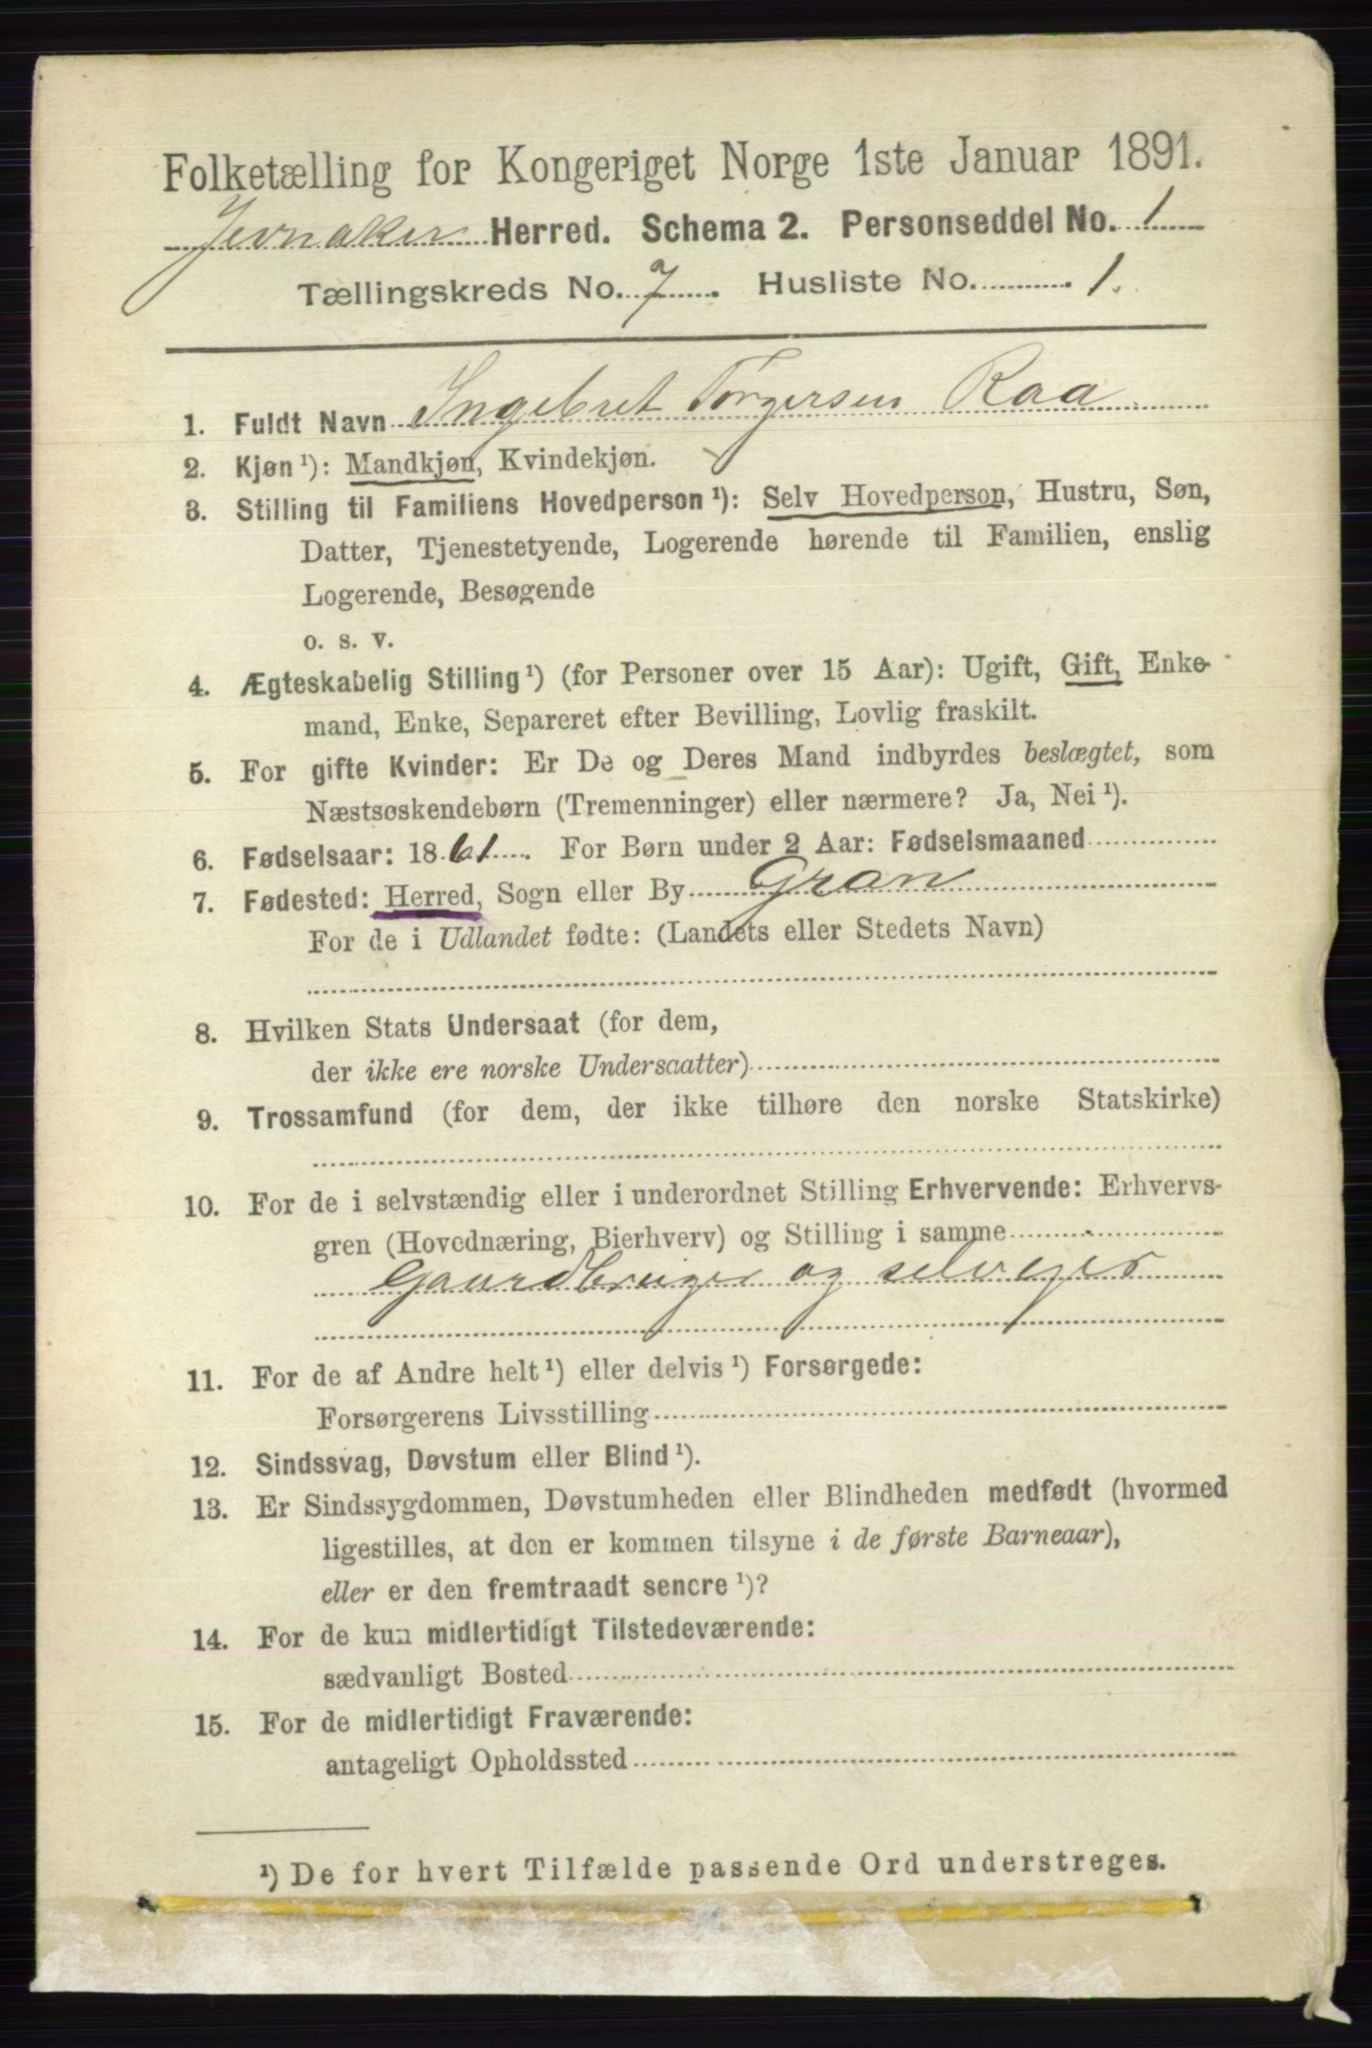 Folketælling for Kongeriget Norge 1ste Januar 1891.
Jevnaker Herred. Schema 2. Personseddel No. 1
Tællingskreds No. 7. Husliste No. 1.
1. Fuldt Navn Ingebret Torgersen Raa
2. Kjøn¹): Mandkjøn, Kvindekjøn.
3. Stilling til Familiens Hovedperson¹): Selv Hovedperson, Hustru, Søn,
Datter, Tjenestetyende, Logerende hørende til Familien, enslig
Logerende, Besøgende
o. s. v.
4. Ægteskabelig Stilling¹) (for Personer over 15 Aar): Ugift, Gift, Enke-
mand, Enke, Separeret efter Bevilling, Lovlig fraskilt.
5. For gifte Kvinder: Er De og Deres Mand indbyrdes beslægtet, som
Næstsøskendebørn (Tremenninger) eller nærmere? Ja, Nei¹).
6. Fødselsaar: 1861. For Børn under 2 Aar: Fødselsmaaned
7. Fødested: Herred, Sogn eller By Gran
For de i Udlandet fødte: (Landets eller Stedets Navn)
8. Hvilken Stats Undersaat (for dem,
der ikke ere norske Undersaatter)
9. Trossamfund (for dem, der ikke tilhøre den norske Statskirke)
10. For de i selvstændig eller i underordnet Stilling Erhvervende: Erhvervs-
gren (Hovednæring, Bierhverv) og Stilling i samme
Gaardbruger og selveger
11. For de af Andre helt¹) eller delvis¹) Forsørgede:
Forsørgerens Livsstilling
12. Sindssvag, Døvstum eller Blind¹).
13. Er Sindssygdommen, Døvstumheden eller Blindheden medfødt (hvormed
ligestilles, at den er kommen tilsyne i de første Barneaar),
eller er den fremtraadt senere¹)?
14. For de kun midlertidigt Tilstedeværende:
sædvanligt Bosted
15. For de midlertidigt Fraværende:
antageligt Opholdssted
¹) De for hvert Tilfælde passende Ord understreges.